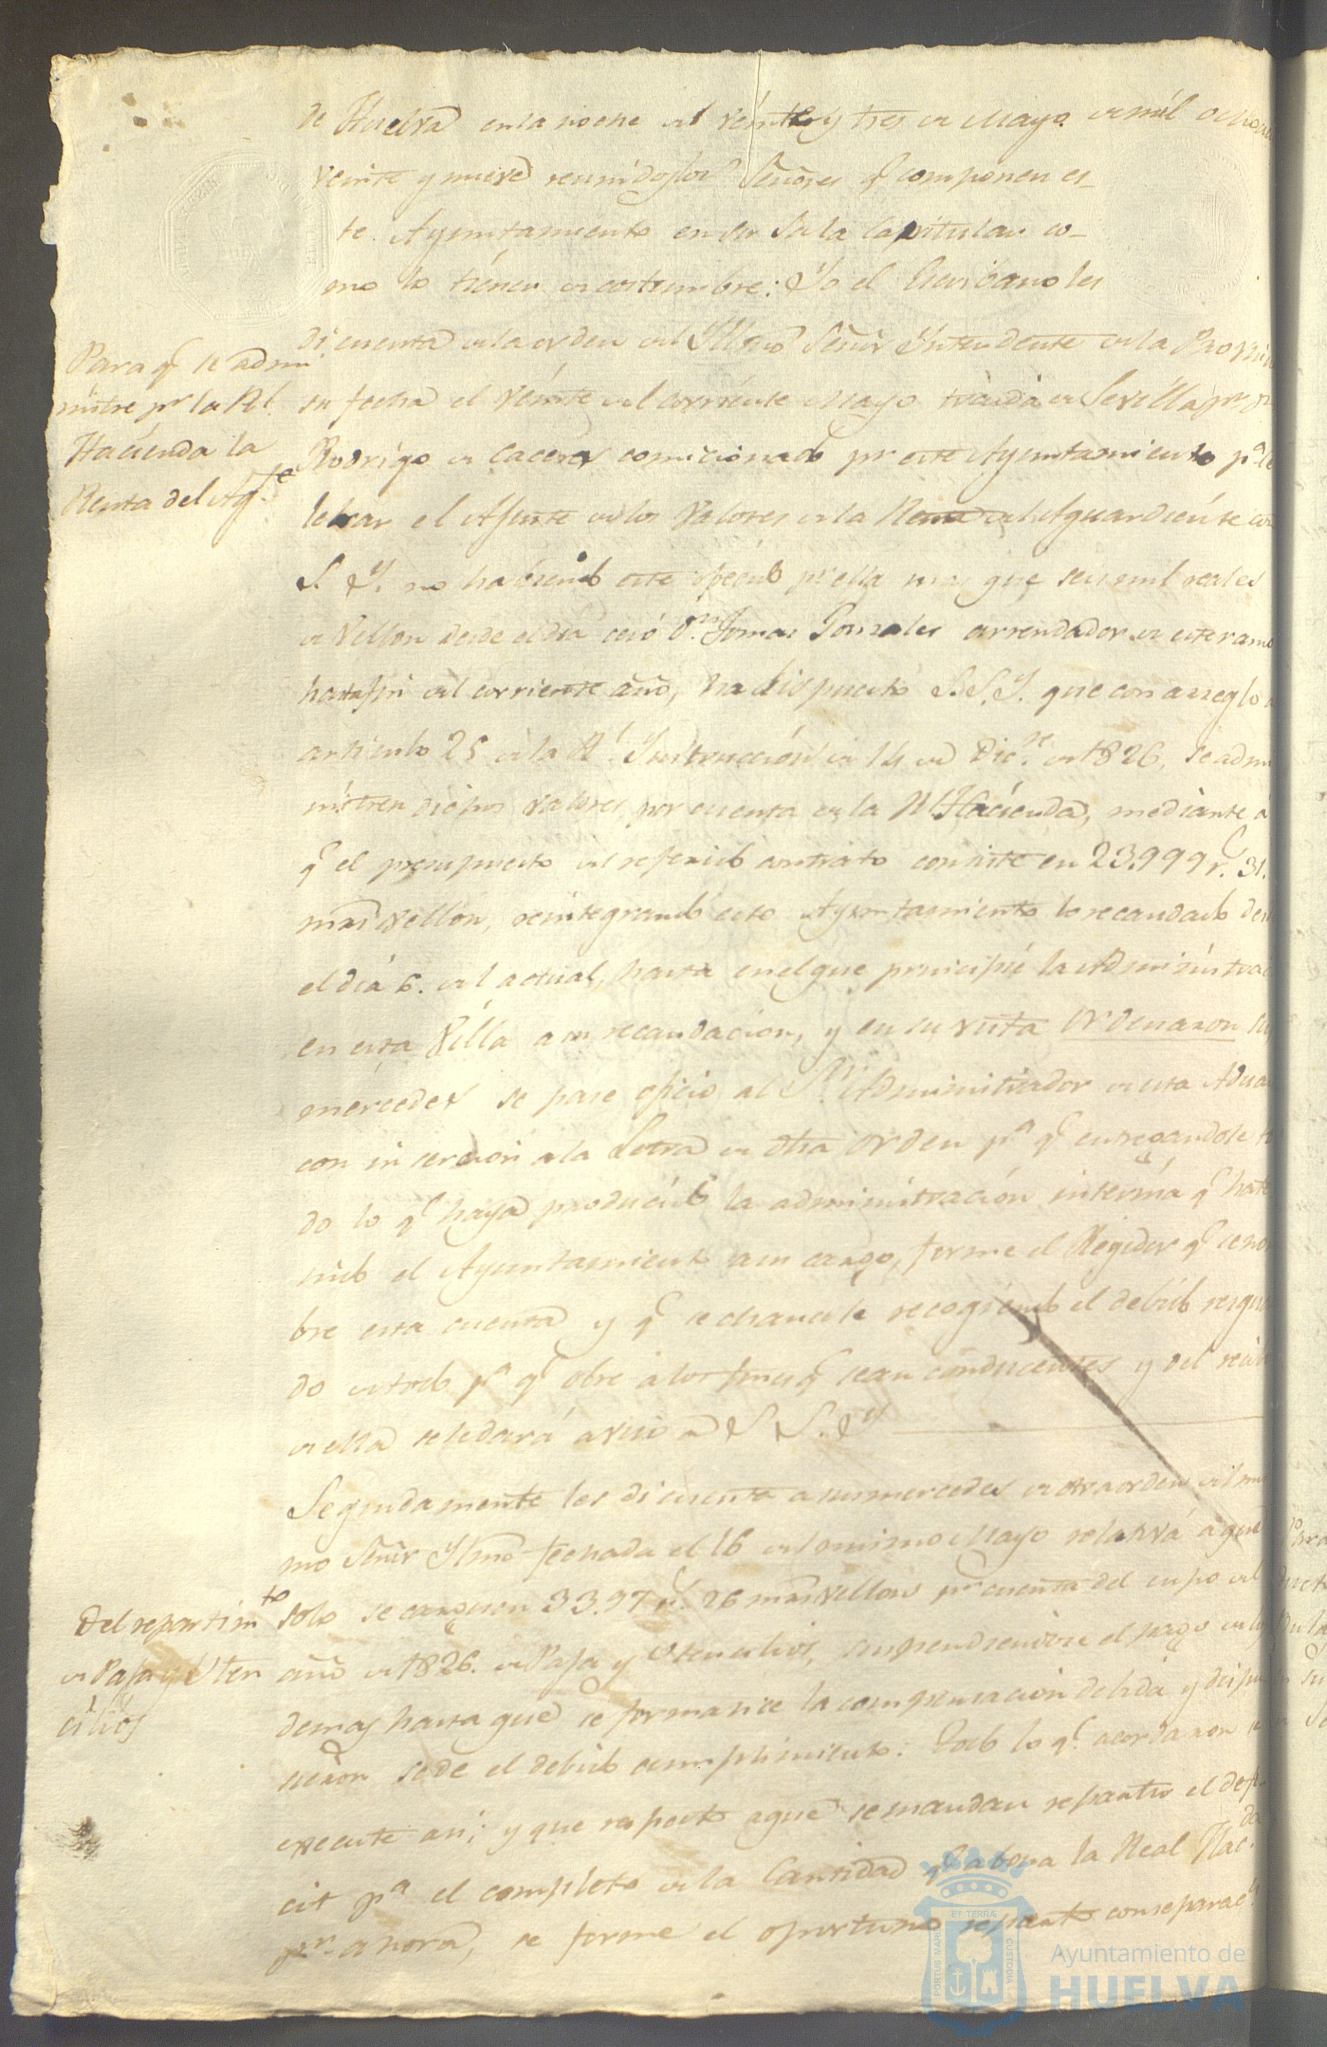 de Huelva en la noche del veinte y tres de Mayo de mil ocho
veinte y nueve reunidos los Señores q.e componen es-
te Ayuntamiento en su Sala Capitular co-
mo lo tienen de costumbre: Yo el Escribano les
di cuenta de la orden del Yllmo Señor Yntendente de la Provin
su fecha el veinte del corriente Mayo traida de Sevilla por
Rodrigo de Caceres comicionado por este Ayuntamiento p.a
lebrar el Ajuste de los Valores de la Renta del Aguardiente con
S. Y. no habiendo este por ella mas que seis mil reales
de Vellon desde el dia cesó D.n Tomas Gonzales arrendador de este ramo
hasta fin del corriente año, ha dispuesto S.S.Y. que con arreglo a
articulo 25 de la R.l Ynstruccion de 14 de Dic.re de 1826, se admi
nistren dichos valores por cuenta de la Rl Hacienda, mediante a
q.e el presupuesto del referido contrato consiste en 23.999 r.s 31.
mrs vellon, reintegrando este Ayuntamiento lo recaudado des
el dia 6. del actual, hasta en el que principie la Administrac
en esta Villa a su recaudacion, y en su vista Ordenaron su
mercedes se pase oficio al S.or Administrador de esta Adua
con insercion a la Letra de dha orden p.a q.e entregandole to
do lo q.e haya producido la administracion interina q.e ha te
nido el Ayuntamiento a su cargo, forme el Regidor q.e se no
bre esta cuenta y q.e se chancele recogiendo el debido resgua
do de todo p.a q.e obre a los fines q.e sean conducentes y del reciv
de ella se le dará aviso a S. S. Y.
Segundamente les di cuenta a sus mercedes de otra orden del mis
mo Señor Yllmo fechada el 16 del mismo Mayo relativa a que
solo se carguen 33.97 r.s 26 mrs vellon por cuenta del cupo del
año de 1826. de Paja y Utencilios, suspendiendose el pago de los
demas hasta que se formalice la compensacion debida y
se de el debido cumplimiento: Todo lo q.e acordaron se
execute asi; y que respecto a que se mandan repartir el defi-
cit p.a el completo de la Cantidad q.e abona la Real Hac.da
por ahora, se forme el oportuno reparto con separac.n
Para q.e se admi
nistre p.r la Rl.
Hacienda la
Renta del Ag.te
Del repartim.to
de Paja y Uten
cilios
ET TERRÆ
PORTUS MARIS
CUSTODIA
Ayuntamiento de
HUELVA